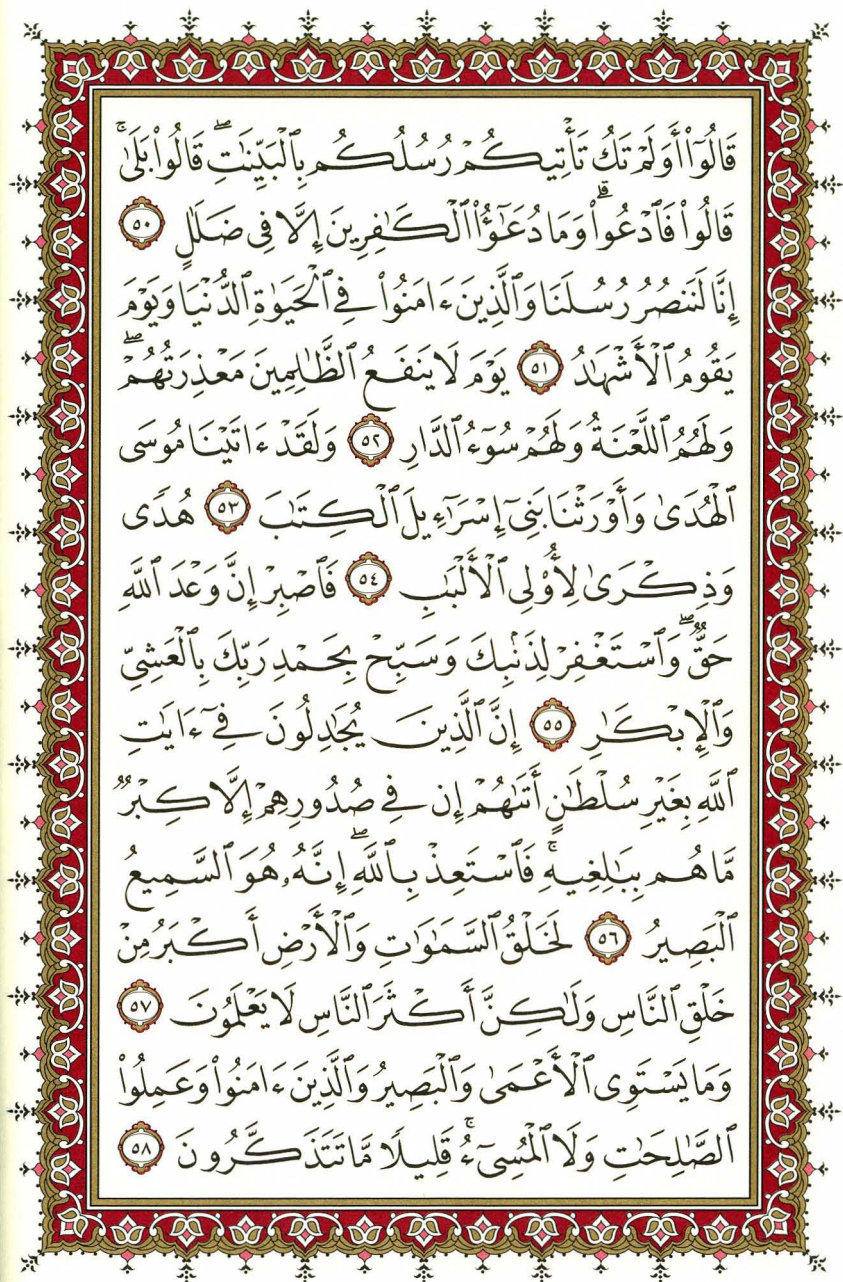 قَالُوٓا۟ أَوَلَمْ تَكُ تَأْتِيكُمْ رُسُلُكُم بِٱلْبَيِّنَٰتِ ۖ قَالُوا۟ بَلَىٰ ۚ
قَالُوا۟ فَٱدْعُوا۟ ۗ وَمَا دُعَٰٓؤُا۟ ٱلْكَٰفِرِينَ إِلَّا فِى ضَلَٰلٍ ٥٠
إِنَّا لَنَنصُرُ رُسُلَنَا وَٱلَّذِينَ ءَامَنُوا۟ فِى ٱلْحَيَوٰةِ ٱلدُّنْيَا وَيَوْمَ
يَقُومُ ٱلْأَشْهَٰدُ ٥١ يَوْمَ لَا يَنفَعُ ٱلظَّٰلِمِينَ مَعْذِرَتُهُمْ ۖ
وَلَهُمُ ٱللَّعْنَةُ وَلَهُمْ سُوٓءُ ٱلدَّارِ ٥٢ وَلَقَدْ ءَاتَيْنَا مُوسَى
ٱلْهُدَىٰ وَأَوْرَثْنَا بَنِىٓ إِسْرَٰٓءِيلَ ٱلْكِتَٰبَ ٥٣ هُدًى
وَذِكْرَىٰ لِأُو۟لِى ٱلْأَلْبَٰبِ ٥٤ فَٱصْبِرْ إِنَّ وَعْدَ ٱللَّهِ
حَقٌّ ۖ وَٱسْتَغْفِرْ لِذَنۢبِكَ وَسَبِّحْ بِحَمْدِ رَبِّكَ بِٱلْعَشِىِّ
وَٱلْإِبْكَٰرِ ٥٥ إِنَّ ٱلَّذِينَ يُجَٰدِلُونَ فِىٓ ءَايَٰتِ
ٱللَّهِ بِغَيْرِ سُلْطَٰنٍ أَتَىٰهُمْ إِن فِى صُدُورِهِمْ إِلَّا كِبْرٌ
مَّا هُم بِبَٰلِغِيهِ ۚ فَٱسْتَعِذْ بِٱللَّهِ ۖ إِنَّهُۥ هُوَ ٱلسَّمِيعُ
ٱلْبَصِيرُ ٥٦ لَخَلْقُ ٱلسَّمَٰوَٰتِ وَٱلْأَرْضِ أَكْبَرُ مِنْ
خَلْقِ ٱلنَّاسِ وَلَٰكِنَّ أَكْثَرَ ٱلنَّاسِ لَا يَعْلَمُونَ ٥٧
وَمَا يَسْتَوِى ٱلْأَعْمَىٰ وَٱلْبَصِيرُ وَٱلَّذِينَ ءَامَنُوا۟ وَعَمِلُوا۟
ٱلصَّٰلِحَٰتِ وَلَا ٱلْمُسِىٓءُ ۚ قَلِيلًا مَّا تَتَذَكَّرُونَ ٥٨